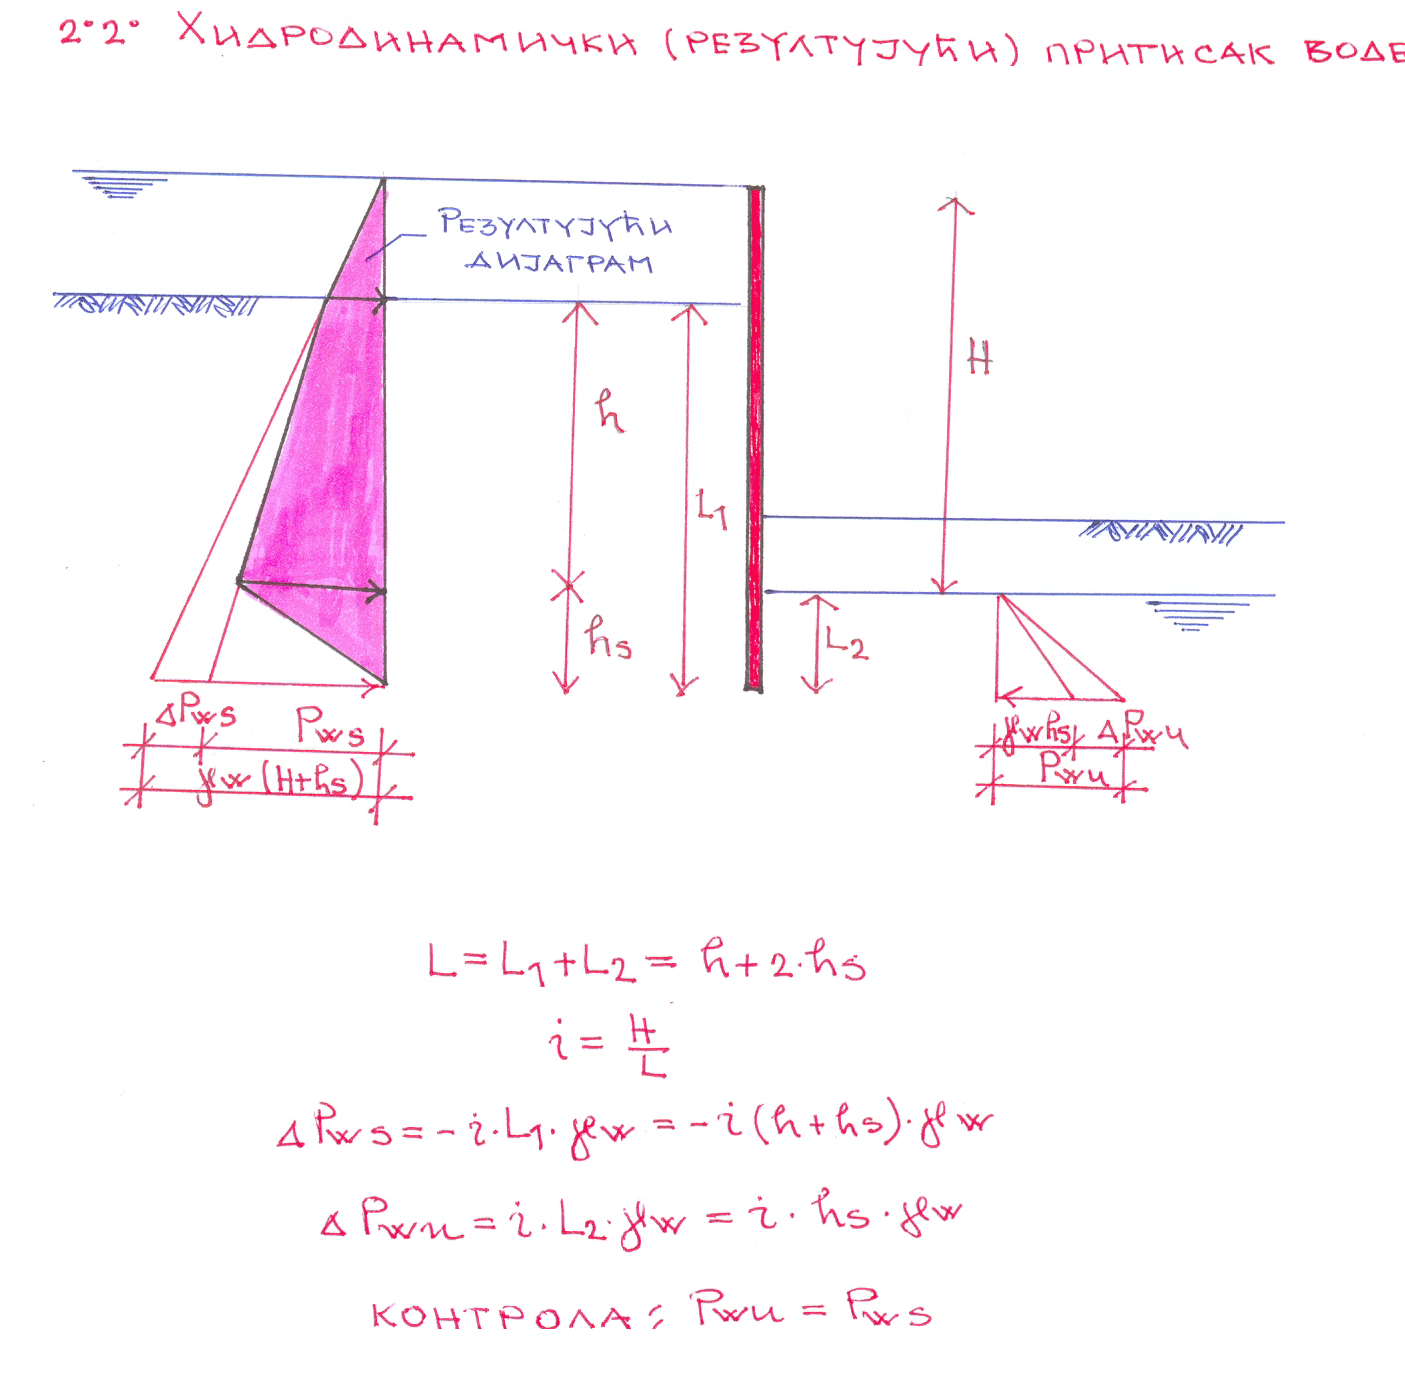 2.2. ХИДРОДИНАМИЧКИ (РЕЗУЛТУЈУЋИ) ПРИТИСАК ВОДЕ
РЕЗУЛТУЈУЋИ
ДИЈАГРАМ
H
h
L1
hs
L2
ΔPws
Pws
γw (H+hs)
γwhs ΔPwu
Pwu
L = L1 + L2 = h + 2·hs
i = H/L
ΔPws = -i·L1·γw = -i(h+hs)·γw
ΔPwu = i·L2·γw = i·hs·γw
КОНТРОЛА: Pwu = Pws